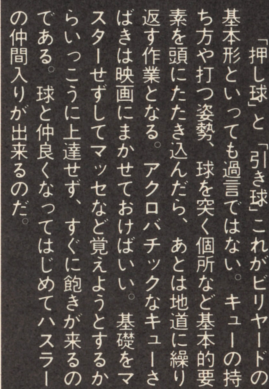 「押し球」と「引き球」これがビリヤードの
基本形といっても過言ではない。キューの持
ち方や打つ姿勢、球を突く個所など基本的要
素を頭にたたき込んだら、あとは地道に繰り
返す作業となる。アクロバチックなキューさ
ばきは映画にまかせておけばいい。基礎をマ
スターせずしてマッセなど覚えようとするか
らいっこうに上達せず、すぐに飽きが来るの
である。球と仲良くなってはじめてハスラー
の仲間入りが出来るのだ。